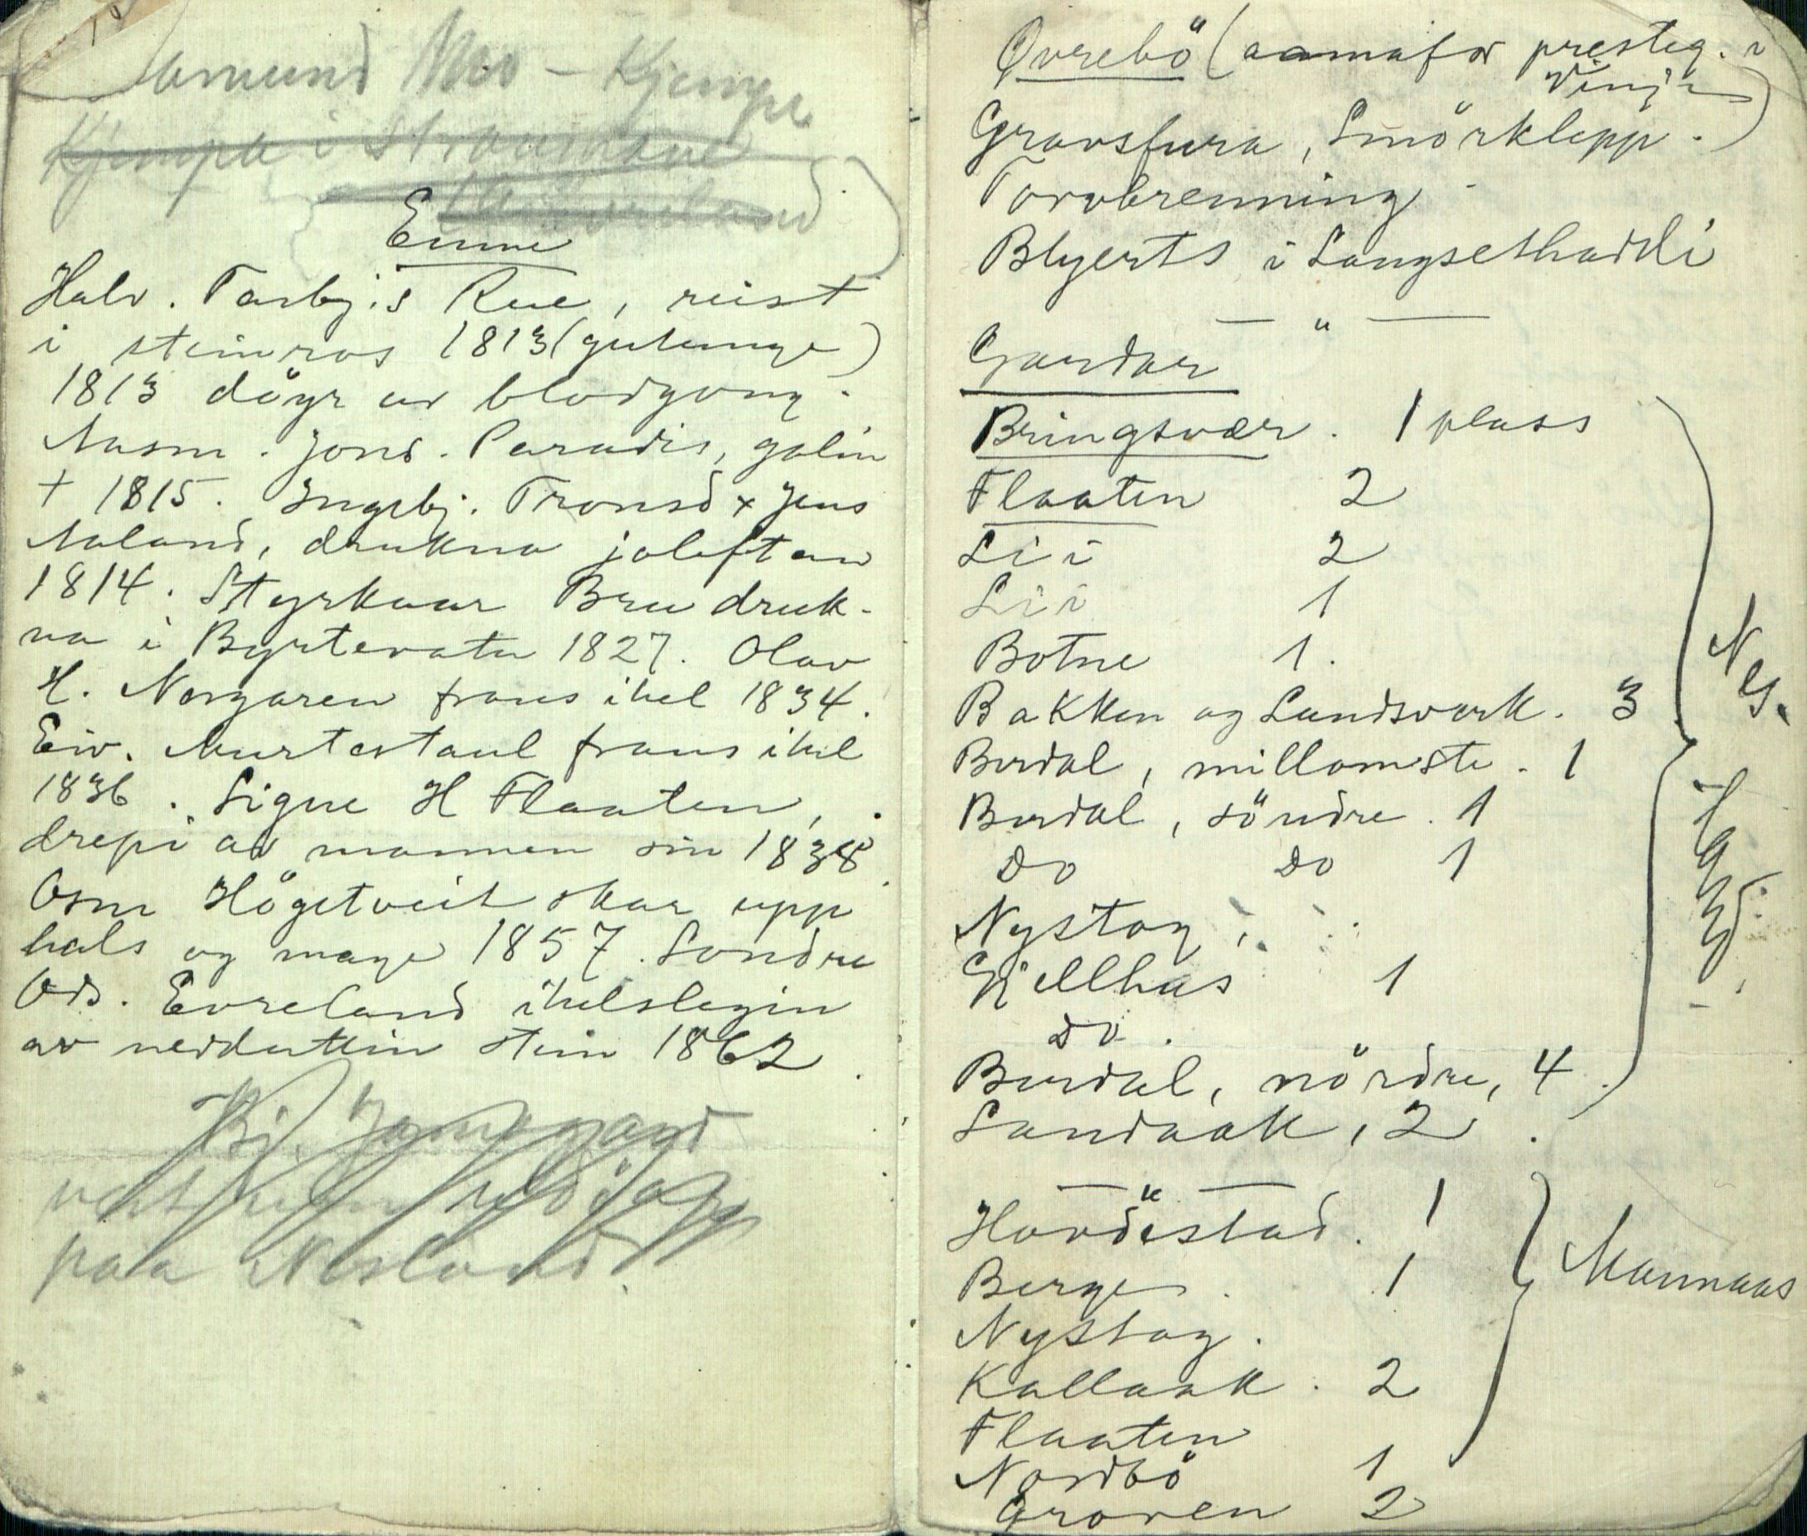 Aamund Mo – Kjempe
Kjempa i Straumane
Eimii
Halv. Tarbj.s Rue, reist
i steinros 1813 (gutunge)
1813 döyr av blodgong.
Aasm. Jons. Paradis, galin
† 1815. Ingebj. Tronsd x Jens
Aaland, drukna joleftan
1814. Styrkaar Bru druk-
na i Byrtevatn 1827. Olav
H. Norgaren fraus ihel 1834.
Eiv. Murtestaul fraus ihel
1836. Signe H Flaaten,
drepi av mannen sin 1838.
Osm Högetveit skar upp
hals og mage 1857. Sondre
Ods. Evreland ihelslegin
av neddutten stein 1862.
Bj.
paa Nesland.
Övrebö (aamafor presteg. i
Vinje)
Gravsfura, Smörklepp.
Torvbrenning
Blyerts i Langsethaddi
— " —
Gardar
Bringsvær. 1 plass
Flaaten 2
Lii 2
Lii 1
Botne 1.
Bakken og Lundsvork. 3
Nes.
Burdal, millomste. 1
Burdal, söndre. 1
Do Do 1
Nystog,
Gjellhus 1
Do.
Burdal, nördre, 4
Sandaak, 2.
— " —
Hovdestad. 1
Berge. 1
Mannaas
Nystog.
Kallaak. 2
Flaaten
Nordbö 1
Groven 2